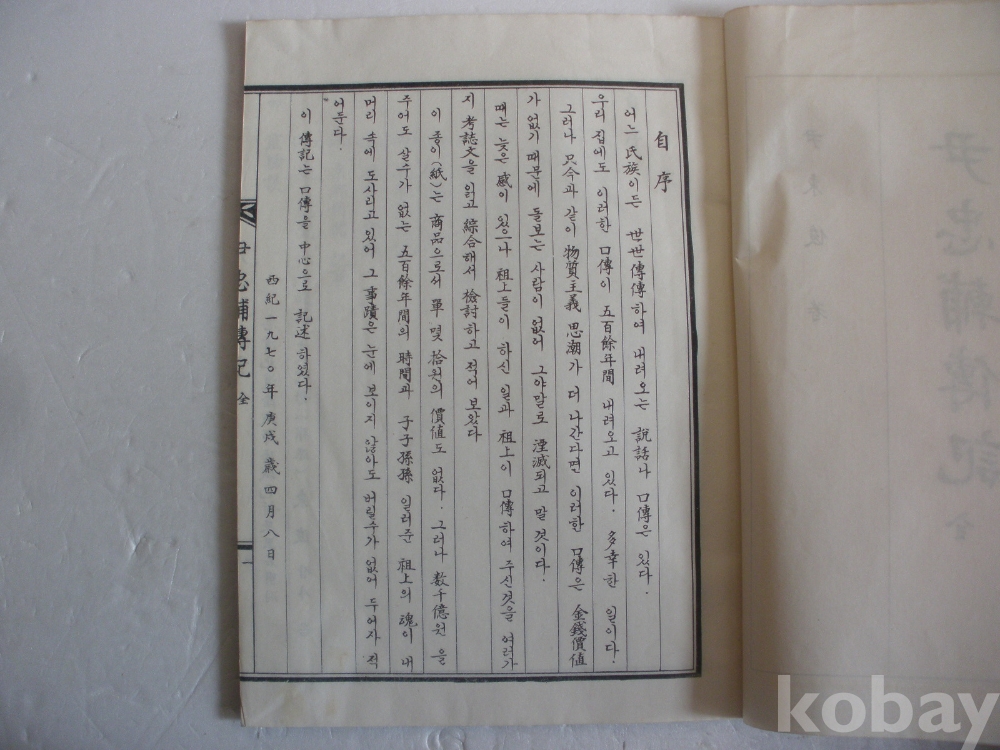 自序
어느 民族이든 世世傳傳하여 내려오는 說話나 口傳은 있다.
우리 집에도 이러한 口傳이 五百餘年間 내려오고 있다. 多幸한 일이다.
그러나 只今과 같이 物質主義 思潮가 더 나간다면 이러한 口傳은 金錢價値
가 없기 때문에 돌보는 사람이 없어 그야말로 湮滅되고 말 것이다.
때는 늦은 感이 있으나 祖上들이 하신 일과 祖上이 口傳하여 주신것을 여러가
지 考誌文을 읽고 綜合해서 檢討하고 적어 보았다
이 종이(紙)는 商品으로서 單 몇 拾원의 價値도 없다. 그러나 数千億원 을
주어도 살수가 없는 五百餘年間의 時間과 子子孫孫 일러준 祖上의 魂이 내
머리 속에 도사리고 있어 그 事蹟은 눈에 보이지 않아도 버릴수가 없어 두어자 적
어둔다.
이 傳記는 口傳을 中心으로 記述하였다.
西紀一九七○年 庚戌歲 四月八日
尹忠輔傳記 全
一
kobay